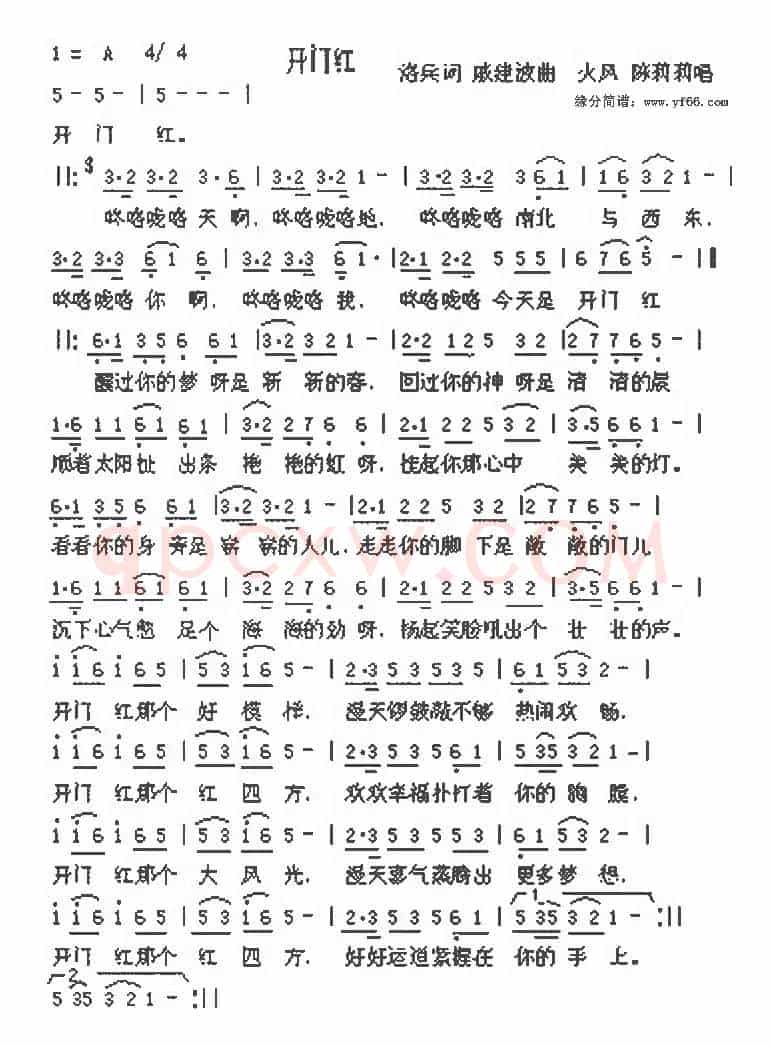 1 = A 4/4 开门红 洛兵词 戚建波曲 火风 陈莉莉唱
5 - 5 - | 5 - - - |
缘分简谱：www.yf66.com
开 门 红。
||: 3 3·2 3·2 3·6 | 3·2 3·2 1 - | 3·2 3·2 3 6 1 | 1 6 3 2 1 - |
咚咯咙咯天啊，咚咯咙咯地， 咚咯咙咯南北 与西东，
3·2 3·3 6 1 6 | 3·2 3·3 6 1· | 2·1 2·2 5 5 5 | 6 7 6 5 - ||
咚咯咙咯你啊，咚咯咙咯我， 咚咯咙咯今天是 开门红
||: 6·1 3 5 6 6 1 | 3·2 3 2 1 - | 2·2 1 2 5 3 2 | 2 7 7 6 5 - |
醒过你的梦呀是新 新的春，回过你的神呀是清 清的晨
1·6 1 1 6 1 6 1 | 3·2 2 7 6 6 | 2·1 2 2 5 3 2 | 3·5 6 6 1 - |
顺着太阳扯出条艳 艳的红呀，挂起你那心中 美 美的灯。
6·1 3 5 6 6 1 | 3·2 3·2 1 - | 2·1 2 2 5 3 2 | 2 7 7 6 5 - |
看看你的身旁是崭 崭的人儿，走走你的脚下是敞 敞的门儿
1·6 1 1 6 1 6 1 | 3·2 2 7 6 6 | 2·1 2 2 5 3 2 | 3·5 6 6 1 - |
沉下心气憋足个海 海的劲呀，扬起笑脸吼出个壮 壮的声。
i i 6 i 6 5 | 5 3 i 6 5 - | 2·3 5 3 5 3 5 | 6 1 5 3 2 - |
开门红那个好模样，漫天锣鼓敲不够 热闹欢畅，
i i 6 i 6 5 | 5 3 i 6 5 - | 2·3 5 3 5 6 1 | 5 35 3 2 1 - |
开门红那个红四方，欢欢幸福扑打着 你的胸膛，
i i 6 i 6 5 | 5 3 i 6 5 - | 2·3 5 3 5 5 3 | 6 1 5 3 2 - |
开门红那个大风光，漫天喜气蒸腾出 更多梦想，
1
i i 6 i 6 5 | 5 3 i 6 5 - | 2·3 5 3 5 6 1 | 5 35 3 2 1 - :||
开门红那个红四方，好好运道紧握在 你的手上。
2
5 35 3 2 1 - :||
qpcxw.com